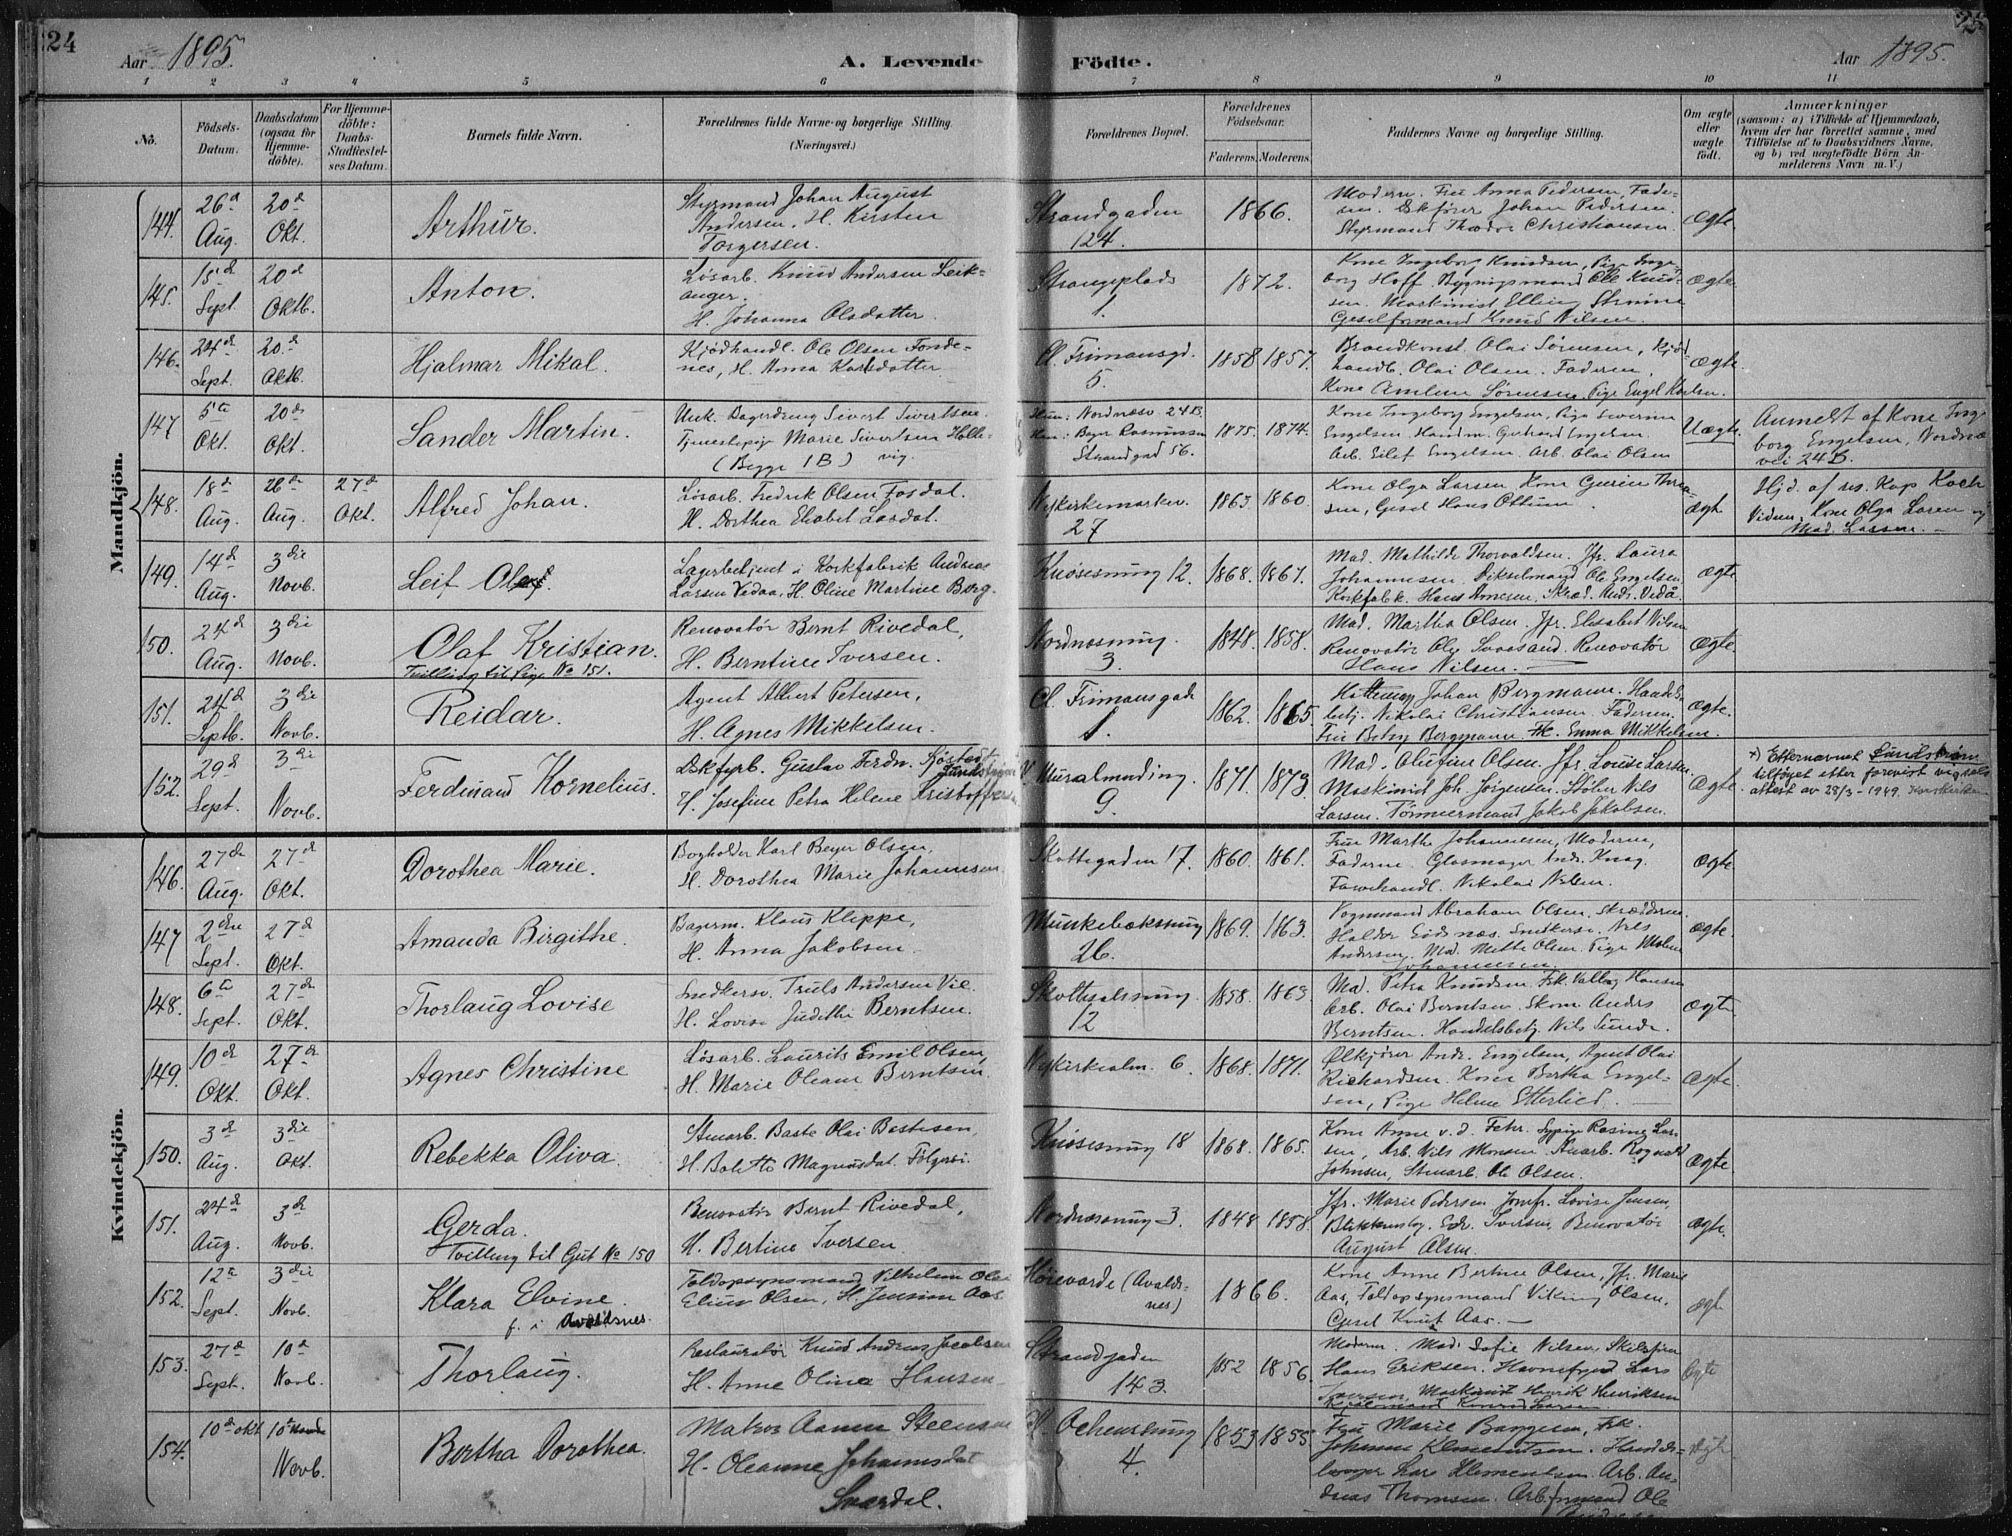 24
Aar 1895.
A. Levende Födte.
Aar 1895.
25
1 2 3 4 5 6 7 8 9 10 11
No.
Födsels-Datum.
Daabsdatum (ogsaa for Hjemme-döbte).
For Hjemme-döbte: Daabs-Stadfæstel-ses Datum.
Barnets fulde Navn.
Forældrenes fulde Navne og borgerlige Stilling.
(Næringsvei.)
Forældrenes Bopæl.
Forældrenes Födselsaar.
Faderens. Moderens.
Faddernes Navne og borgerlige Stilling.
Om ægte eller uægte födt.
Anmærkninger
(saasom: a) i Tilfælde af Hjemmedaab, hvem der har forrettet samme, med Tilföielse af to Daabsvidners Navne, og b) ved uægtefödte Börn An-melderens Navn m. V.)
Mandkjön.
144. 26d Aug. 20d Okt. Arthur.
Styrmand Johan August
Andersen, H. Kirsten
Torgersen.
Strandgaden
124.
1866.
Moderen. Fru Anna Pedersen, Fade-
ren. Johan Pedersen.
Styrmand Thedor Christiansen.
Ægte.
145. 15d Sept. 20d Oktb. Anton.
Løsarb. Knud Andersen Leik-
anger.
H. Johanna Olsdatter.
Strangeplads
1.
1872.
Kone Ingeborg Knudsen, Pige Inge-
borg Hoff. Bygningsmand Ole Knud-
sen. Maskinist Elling
Knud Nilsen.
Ægte.
146. 24de Sept. 20d Oktb. Hjalmar Mikal.
Kjødhandl. Ole Olsen Tonde-
nes, H. Anna Karlsdatter
Cl. Frimansgd.
5.
1858 1857.
Brandkonst. Olai Sørensen, Kjød-
handl. Olai Olsen. Faderen,
Kone Sørensen, Pige Engel
Ægte.
147 5te Okt. 20de Okt. Sander Martin.
Unk. Bagerdreng Sivert Sivertsen.
Tjenestepige Marie Sivertsen Holle-
(Begge 1B) vig.
Hun: Nordnæsv 24B.
Han: Bager Rasmussen
Strandgad 56.
1875. 1874.
Kone Ingeborg Engelsen, Pige Severine
Engelsen. Handm. Engelsen.
Arb. Eilef Engelsen. Arb. Olai Olsen
Uægte.
Anmeldt af Kone Inge
borg Engelsen, Nordnæs
vei 24B.
148. 18d Aug. 26de Aug. 27de Okt. Alfred Johan.
Løsarb. Fredrik Olsen Fosdal.
H. Dorthea Elisabet Larsdat.
Nykirkemarken.
27
1863 1860
Kone Olga Larsen Kone
sen, Gesel Hans
Ægt
Hjd. af res. Kap Koch
Vidner, Kone Olga Larsen og
Mad. Larsen. —
149. 14d Aug. 3die Novb. Leif Olaf.
Lagerbetjent i Korkfabrik Andreas
Larsen Vedaa, H. Oline Martine Berg.
Knøsesmug 12.
1868. 1867.
Mad. Mathilde Thorvaldsen. Jfr. Laura
Johannesen. Ole Engelsen
Korkfabk. Hans Arnesen. Skræd. Andr. Vedå.
Ægte
150. 24d Aug. 3die Novb. Olaf Kristian.
Tvilling til Pige No 151.
Renovatør Bernt Rivedal,
H. Berntine Iversen.
Nordnæsmug.
3.
1848. 1858.
Mad. Martha Olsen. Jfr. Elisabet Nilsen
Renovatør Ole Renovatør
Hans Nilsen. —
Ægte
151. 24de Septb. 3die Novb. Reidar.
Agent Albert Petersen,
H. Agnes Mikkelsen.
Cl. Frimansgade
1.
1862. 1865.
Johan Bergmann. Handels-
betj. Nikolai Christiansen. Faderen.
Fru Betsy Bergmann. Frk. Emma Mikkelsen.
Ægte.
152. 29d Sept. 3die Novb. Ferdinand Kornelius.
Gustav Ferdn. Sjøsted
Sundstrøm
H. Josefine Petra Helene Kristoffersen
V. Muralmending.
9.
1871. 1873.
Mad. Olsen. Jfr. Louise Larsen.
Maskinist Joh. Jørgensen. Nils
Larsen. Tømmermand Jakob Jakobsen.
Ægte.
x) Etternavnet Sundstrøm
tilføyet etter forevist vigsels
attest av 28/3 - 1949.
Kvindekjön.
146. 27de Aug. 27d Okt. Dorothea Marie.
Bogholder Karl Beyer Olsen,
H. Dorothea Marie Johannesen
Skottegaden 17.
1860. 1861.
Fru Marthe Johannesen, Moderen,
Faderen. Glasmager Andr. Knag.
Farvehandl. Nikolai Nilsen.
Ægte
147 2den Sept. 27d Okt. Amanda Birgithe.
Bagerm. Klaus Klippe,
H. Anna Jakobsen
Munkebæksmug
26.
1869. 1863.
Vognmand Abraham Olsen. Skrædderm.
Halder Eidsnæs. Snedkersv. Nils
Andersen. Mad. Mette Olsen. Pige Malene
Johannesen.
Ægte.
148. 6te Sept. 27de Okt. Thorlaug Lovise
Snedkersv. Truls Andersen Vie.
H. Lovise Judithe Berntsen.
Skottesalsmug.
12
1858. 1863
Mad. Petra Knudsen Frk. Valborg Hansen
Arb. Olai Berntsen Skom. Anders
Berntsen. Handelsbetj. Nils Sunde.
Ægte
149. 10de Okt. 27de Okt. Agnes Christine
Løsarb. Laurits Emil Olsen
H. Marie Oleane Berntsen.
Nykirkealm. 6.
1868. 1871.
Ølkjører Andr. Engelsen, Agent Olai
Richardsen. Kone Bertha Engel-
sen, Pige Helene Etterlied. —
Ægte.
150. 3d Aug. 3die Okt. Rebekka Oliva.
Stuarb. Baste Olai Bastesen
H. Bolette Magnusdat.
Knøsesmug 18
1868. 1865.
Kone Anne v. d. Fehr. Sypige Rasine Lar-
sen, Arb. Nils Monsen. Stuarb. Rognald
Johnsen, Stuarb. Ole Olsen.
Ægte
151. 24de Aug. 3d Novb. Gerda.
Tvilling til Gut No 150
Renovatør Bernt Rivedal,
H. Bertine Iversen
Nordnæsmug 3.
1848 1858.
Jfr. Marie Pedersen Jomfr. Lovise Jensen,
Edv. Iversen, Renovatør
August Olsen.
Ægte.
152. 12te Sept. 3die Novb. Klara Elvine.
f. i Avaldsnes.
Toldopsynsmand Vilhelm Olai
Elius Olsen, H. Jensine Aas
Kørevarde (Avalds-
nes)
1866
Kone Anne Bertine Olsen, Jfr. Marie
Aas, Toldopsynsmand Viking Olsen,
Gesel Knut Aas. —
Ægt
153. 27d Sept. 10d Novb. Thorlaug.
Restauratør Knud Andreas Jacobsen
H. Anne Olina Hansen
Strandgaden
143.
1852 1856.
Moderen. Mad. Sofie Nilsen,
Hans Eriksen. Lars
Maskinist Henrik Henriksen
Konrad Larsen
Ægte
154. 10de okt 10de Novb. Bertha Dorothea.
Matros Steensen
H. Oleanne Johannesdat
Svardal.
4.
1853 1855
Fru Marie
Johanne Klementsen.
Lars Klementsen Arb. An-
dreas Thomsen. Arb.formand Ole
Ægte